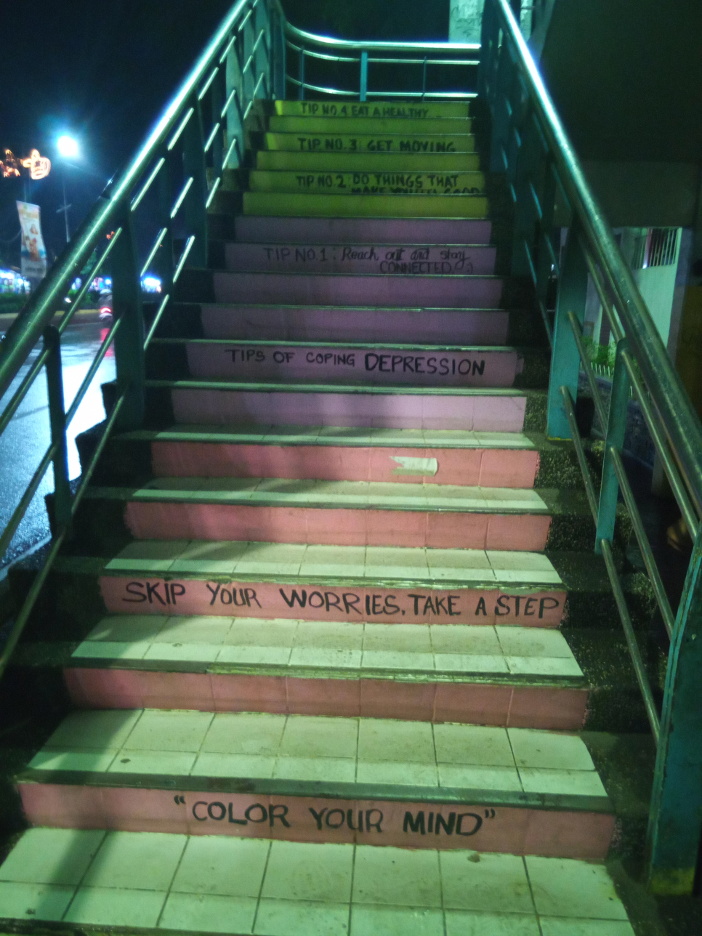 TIP NO.4 EAT A HEALTHY
TIP NO.3 GET MOVING
TIP NO.2 DO THINGS THAT
MAKE YOU FEEL GOOD
TIP NO.1: Reach out and stay
CONNECTED
TIPS OF COPING DEPRESSION
SKIP YOUR WORRIES, TAKE A STEP
"COLOR YOUR MIND"